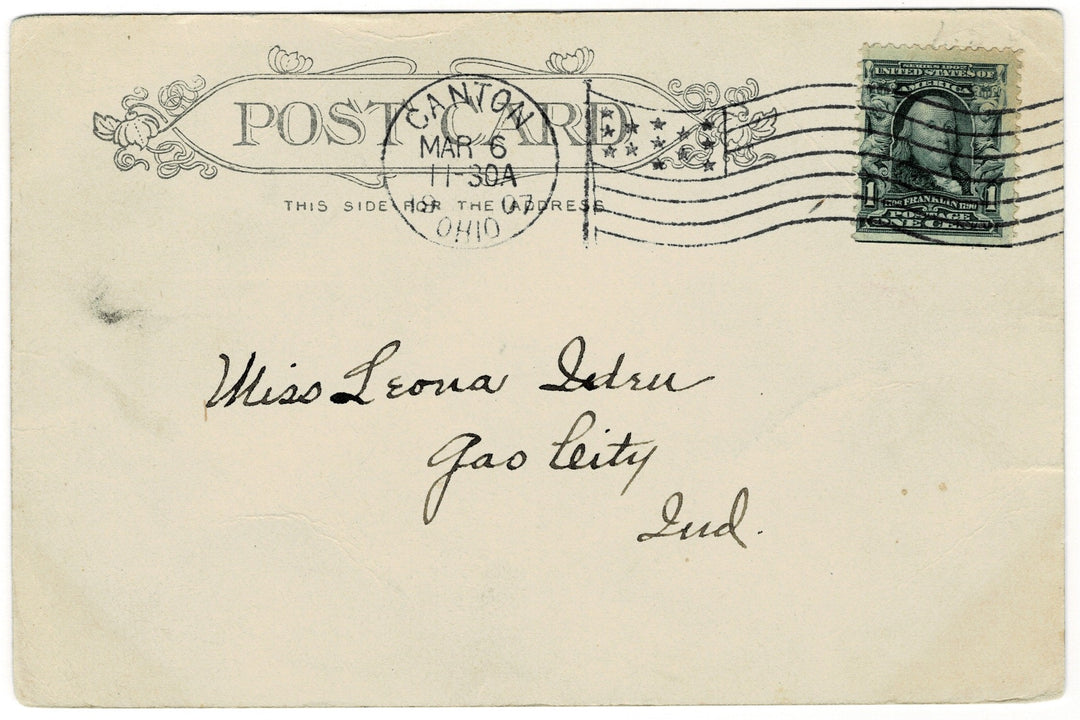 POST CARD
CANTON
MAR 6
11-30A
19 07
OHIO
THIS SIDE FOR THE ADDRESS
SERIES 1902
UNITED STATES OF
AMERICA
1 1
FRANKLIN
POSTAGE
ONE CENT
Miss Leona Iden
Gas City
Ind.